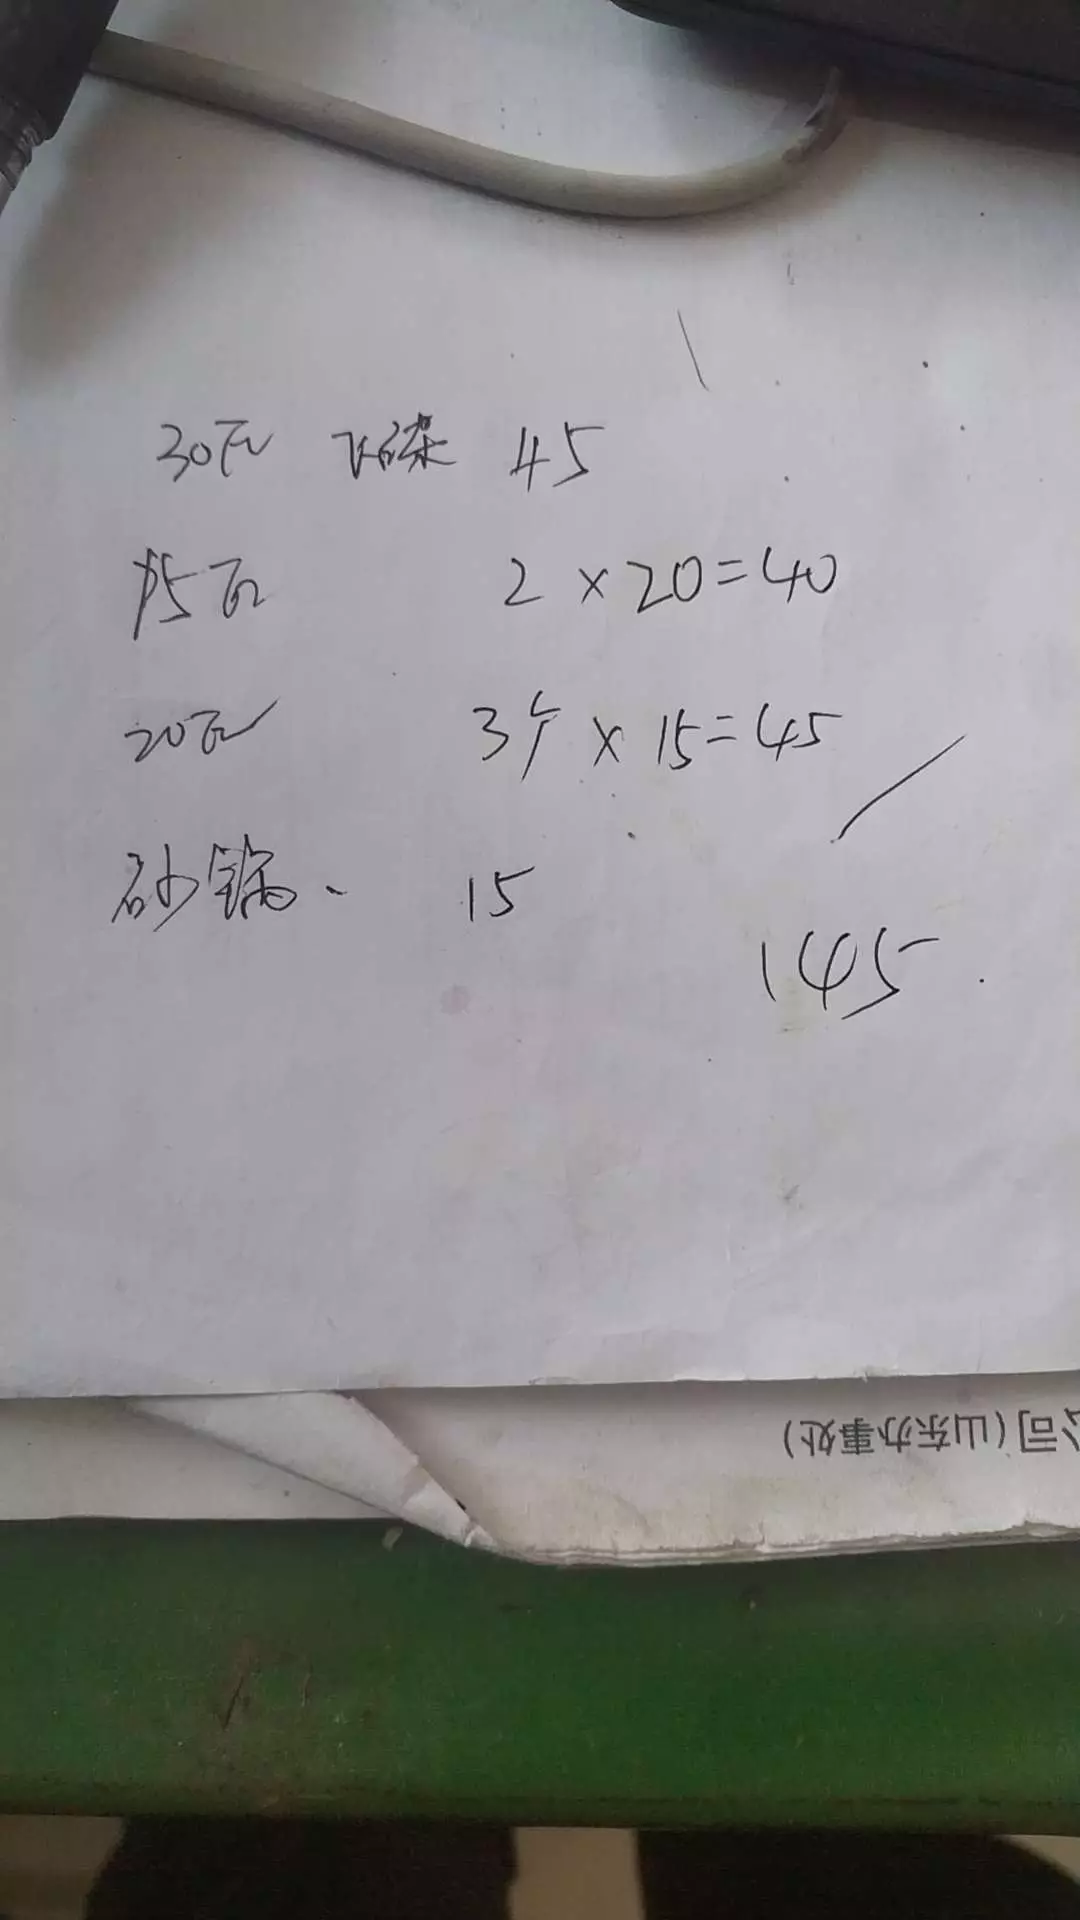 30瓦 45
15瓦 2×20=40
20瓦 3个×15=45
砂锅、 15
145
公司(山东办事处)